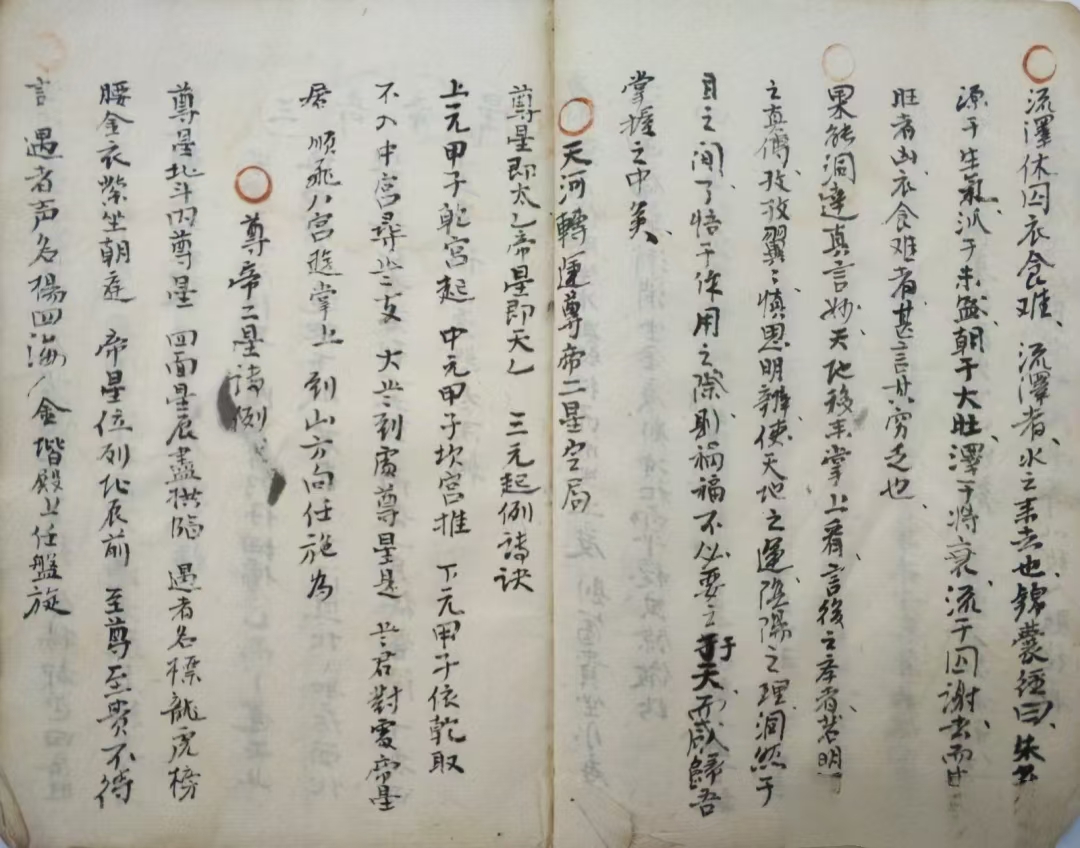 流澤休囚衣食难、流澤者、水之来去也、錦囊经曰、朱雀
源于生氣、派于未盛、朝于大旺、澤于將衰、流于囚谢、去而
旺者凶、衣食难者、甚言其窮乏也、
果能洞達真言妙、天地移来掌上看、言後之孝者、若明
之真傳、孜孜翼ミ、慎思明辨、使天地之運、隂陽之理、洞然于
目之间、了悟于作用之際、則禍福不必委之于天而咸歸吾
掌握之中矣、
天河轉運尊帝二星定局
尊星即太乙帝星即天乙 三元起例詩訣
上元甲子乾宮起 中元甲子坎宮推 下元甲子依乾取
不入中宮尋
支 大 到處尊星是 君對處帝星
居 順飛八宮遊掌上 到山方向任施為
尊帝二星诗例
尊星北斗内尊星 四面星辰盡拱臨 遇者名標龍虎榜
腰金衣紫坐朝庭 帝星位列北辰前 至尊至贵不待
言 遇者声名揚四海 金階殿上任盤旋